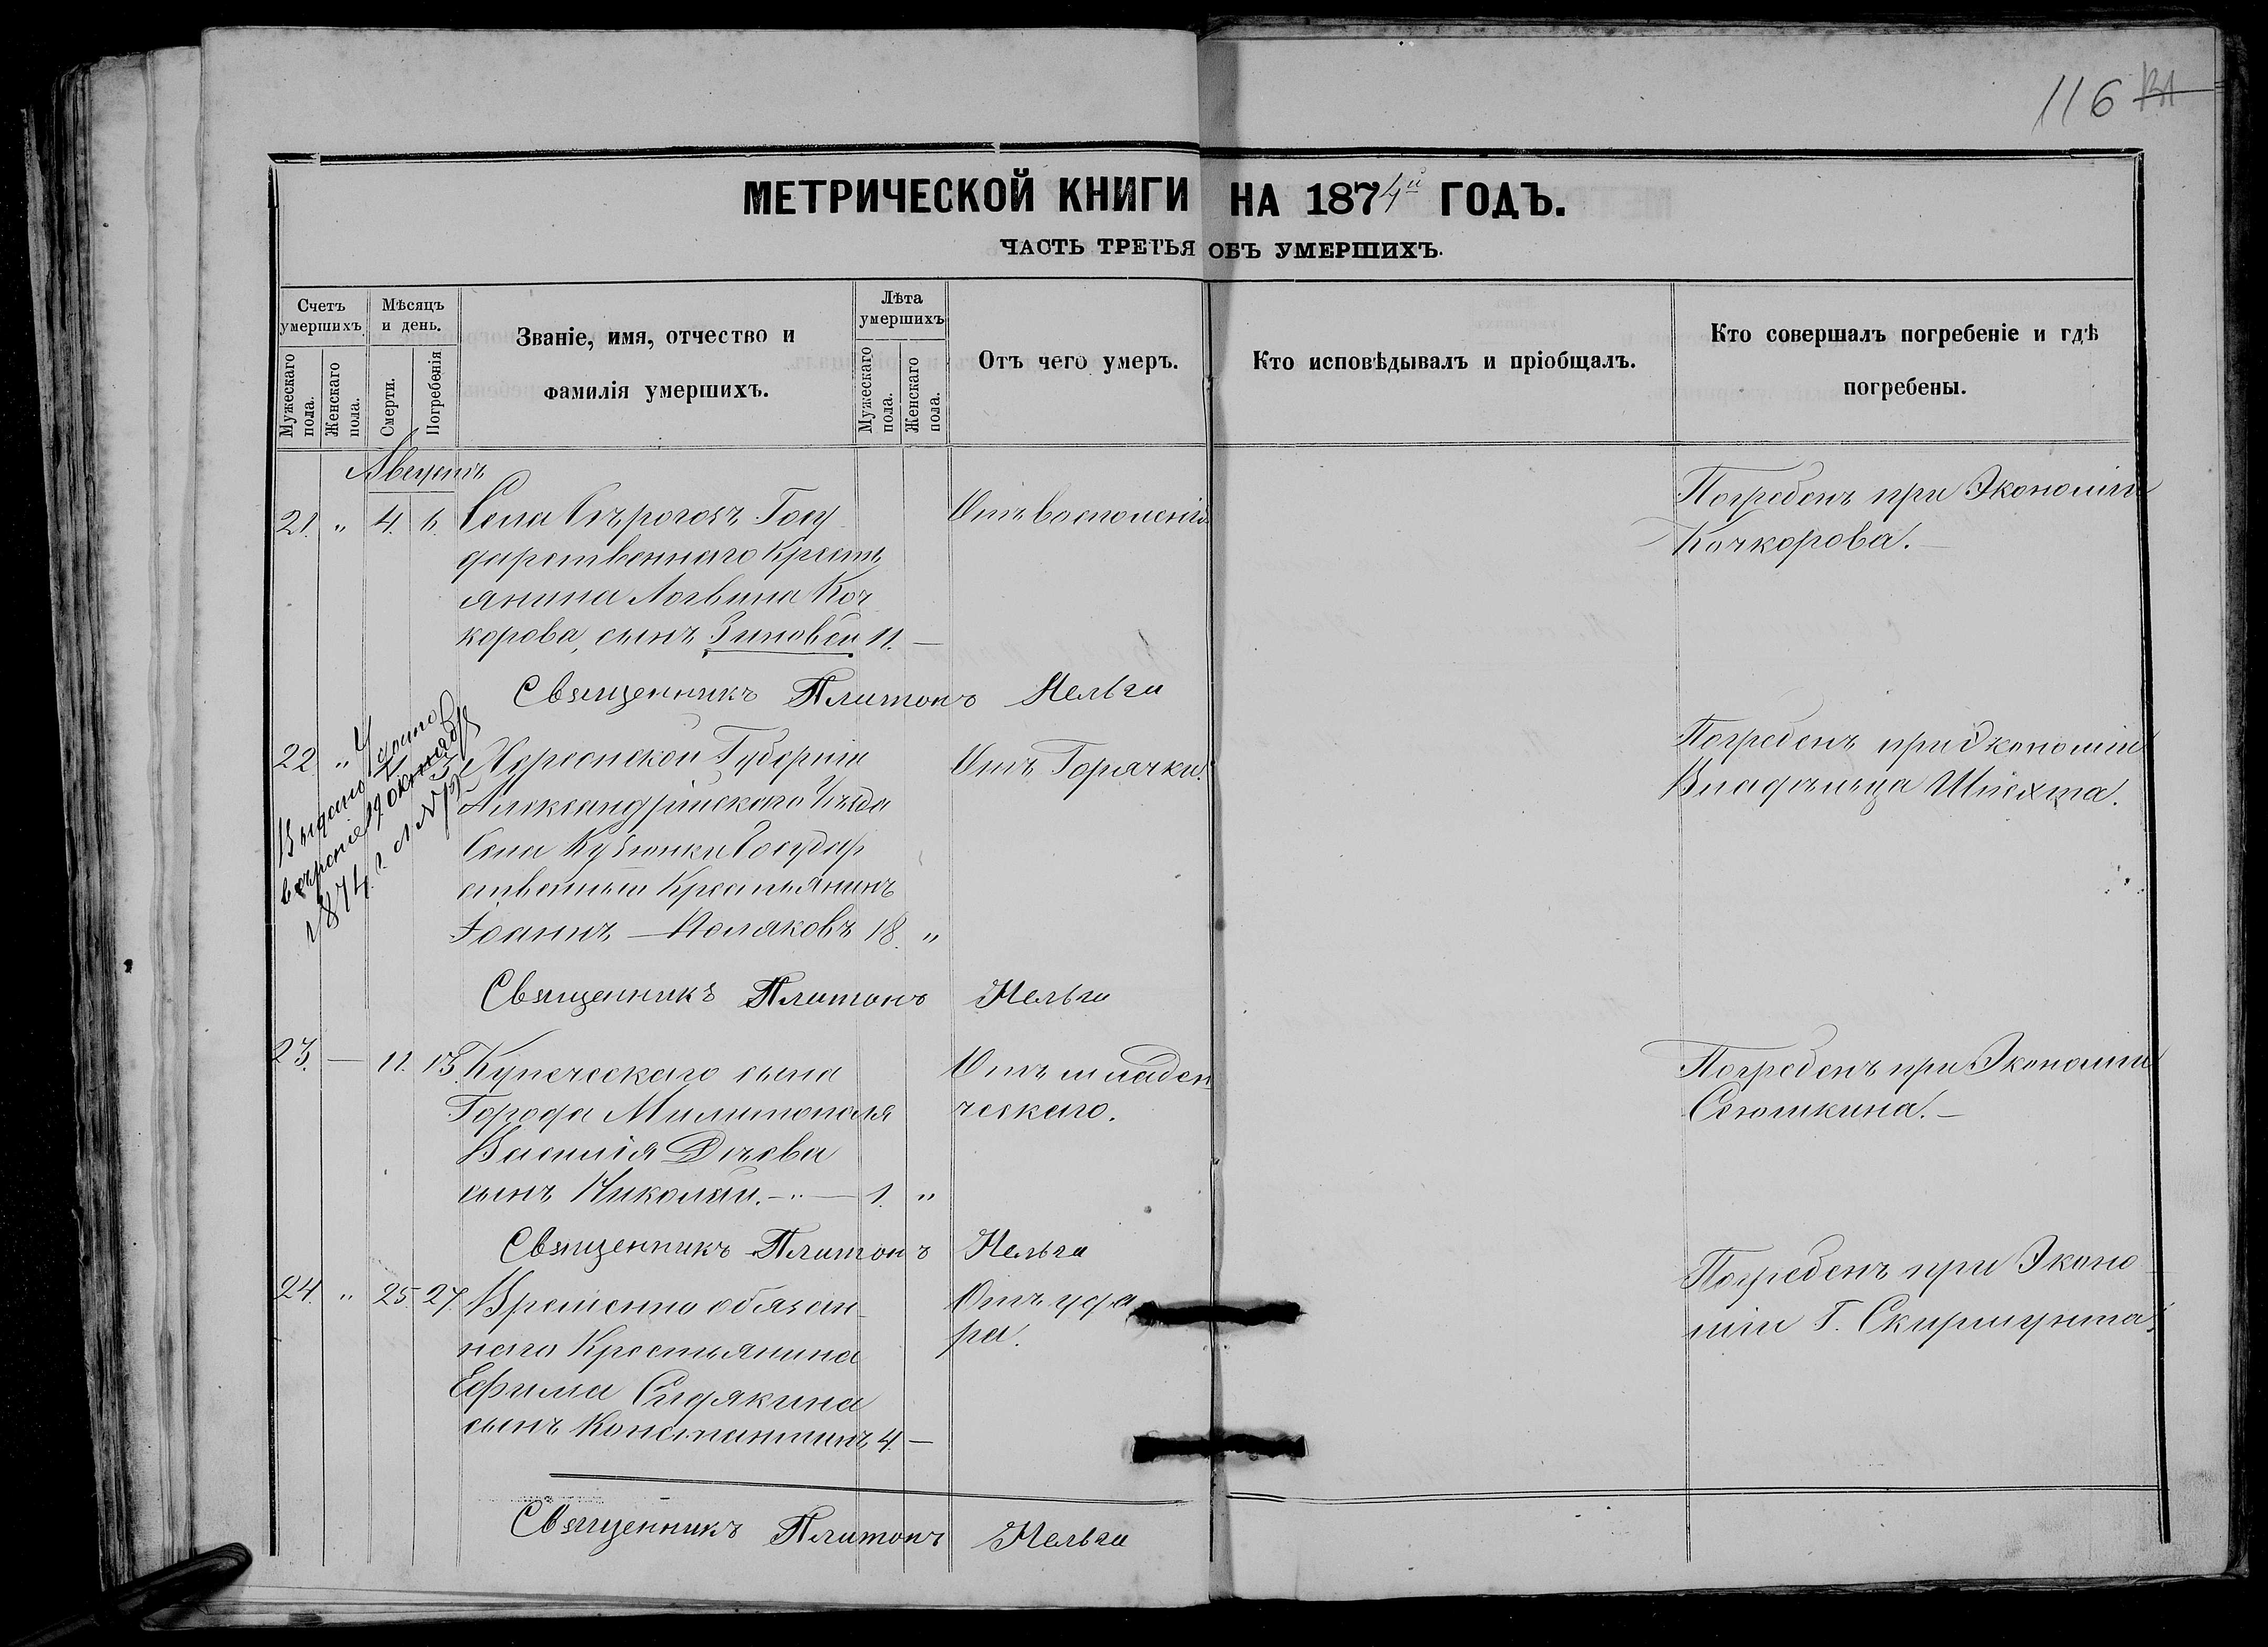 116
МЕТРИЧЕСКОЙ КНИГИ НА 1874й ГОДЪ.
ЧАСТЬ ТРЕТЬЯ ОБЪ УМЕРШИХЪ.
Счетъ умершихъ.
Мужескаго пола.
Женскаго пола.
Мѣсяцъ и день.
Смерти.
Погребенія
Званіе, имя, отчество и
фамилія умершихъ.
Лѣта умершихъ
Мужескаго пола.
Женскаго пола.
Отъ чего умеръ.
Кто исповѣдывалъ и пріобщалъ.
Кто совершалъ погребеніе и гдѣ
погребены.
Августъ
21. " 4. 6. Села Сѣрогозъ Госу
дарственнаго Кресть
янина Логвина Коч
корова, сынъ Зиновей 11. —
Отъ воспаленія
Погребенъ при Экономіи
Кочкорова. —
Священникъ Платонъ Нельга
22 "
Выдано
1874 г.
Херсонской Губерніи
Александрійскаго Уѣзда
Села Государ
ственный Крестьянинъ
Іоаннъ — Поляковъ 18. "
Отъ Горячки.
Погребенъ при Экономіи
Владѣльца Шлехта.
Священникъ Платонъ Нельга
23. — 11. 13. Купеческаго сына
Города Милитополя
Василія
сынъ Николай. — " — 1. "
Отъ младен
ческаго.
Погребенъ при Экономіи
Сеюшкина. —
Священникъ Платонъ Нельга
24. " 25. 27. Временно обязан
наго Крестьянина
Ефима Сидякина
сынъ Константинъ 4. —
Отъ уда
ра.
Погребенъ при Эконо
міи Г. Скирмунта.
Священникъ Платонъ Нельга